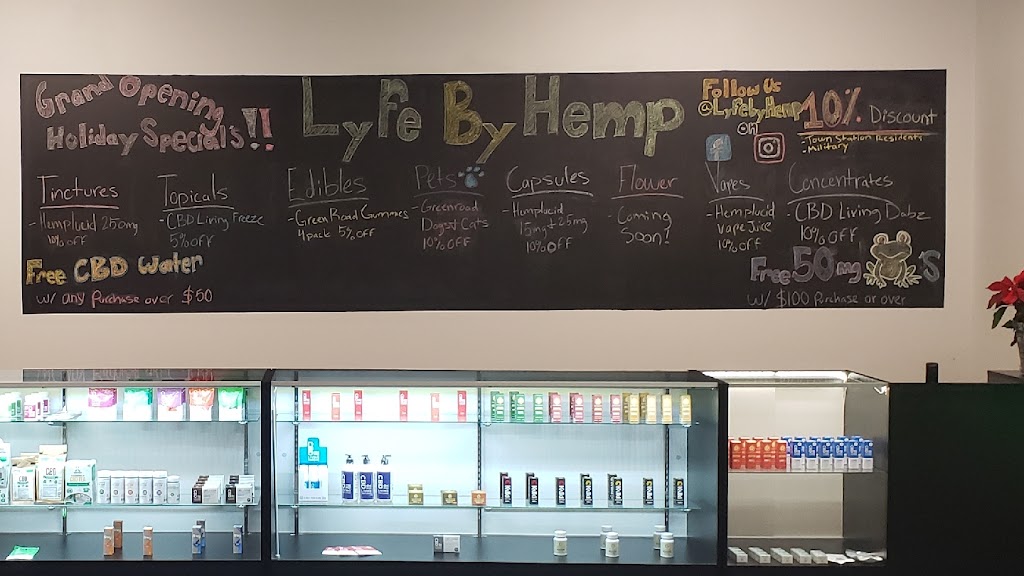 Grand Opening
Holiday Specials!!
Lyfe By Hemp
Follow Us
@LyfebyHemp
on
10% Discount
- Town Station Resident
- Military
Tinctures
- Hemplucid 250mg
10% OFF
Topicals
- CBD Living Freeze
5% OFF
Edibles
- Green Road Gummies
4pack 5% OFF
Pets
- Greenroad
Dogs & Cats
10% OFF
Capsules
- Hemplucid
15mg & 25mg
10% OFF
Flower
- Coming
Soon!
Vapes
- Hemplucid
Vape Juice
10% OFF
Concentrates
- CBD Living Dabz
10% OFF
Free CBD Water
w/ any Purchase over $50
Free 50mg 'S
w/ $100 Purchase or over